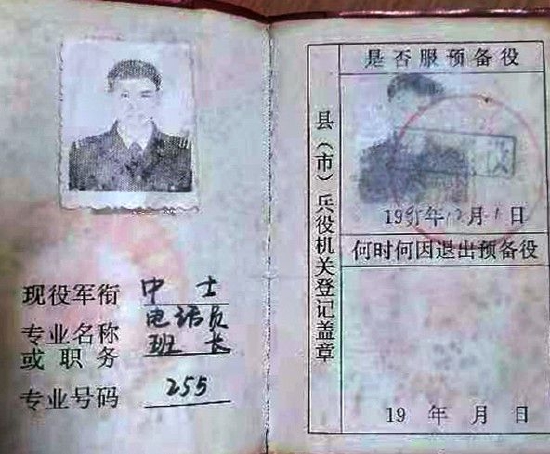 现役军衔 中士
专业名称 电话员
或职务 班长
专业号码 255
县（市）兵役机关登记盖章
是否服预备役
1995年12月1日
何时何因退出预备役
19 年 月 日